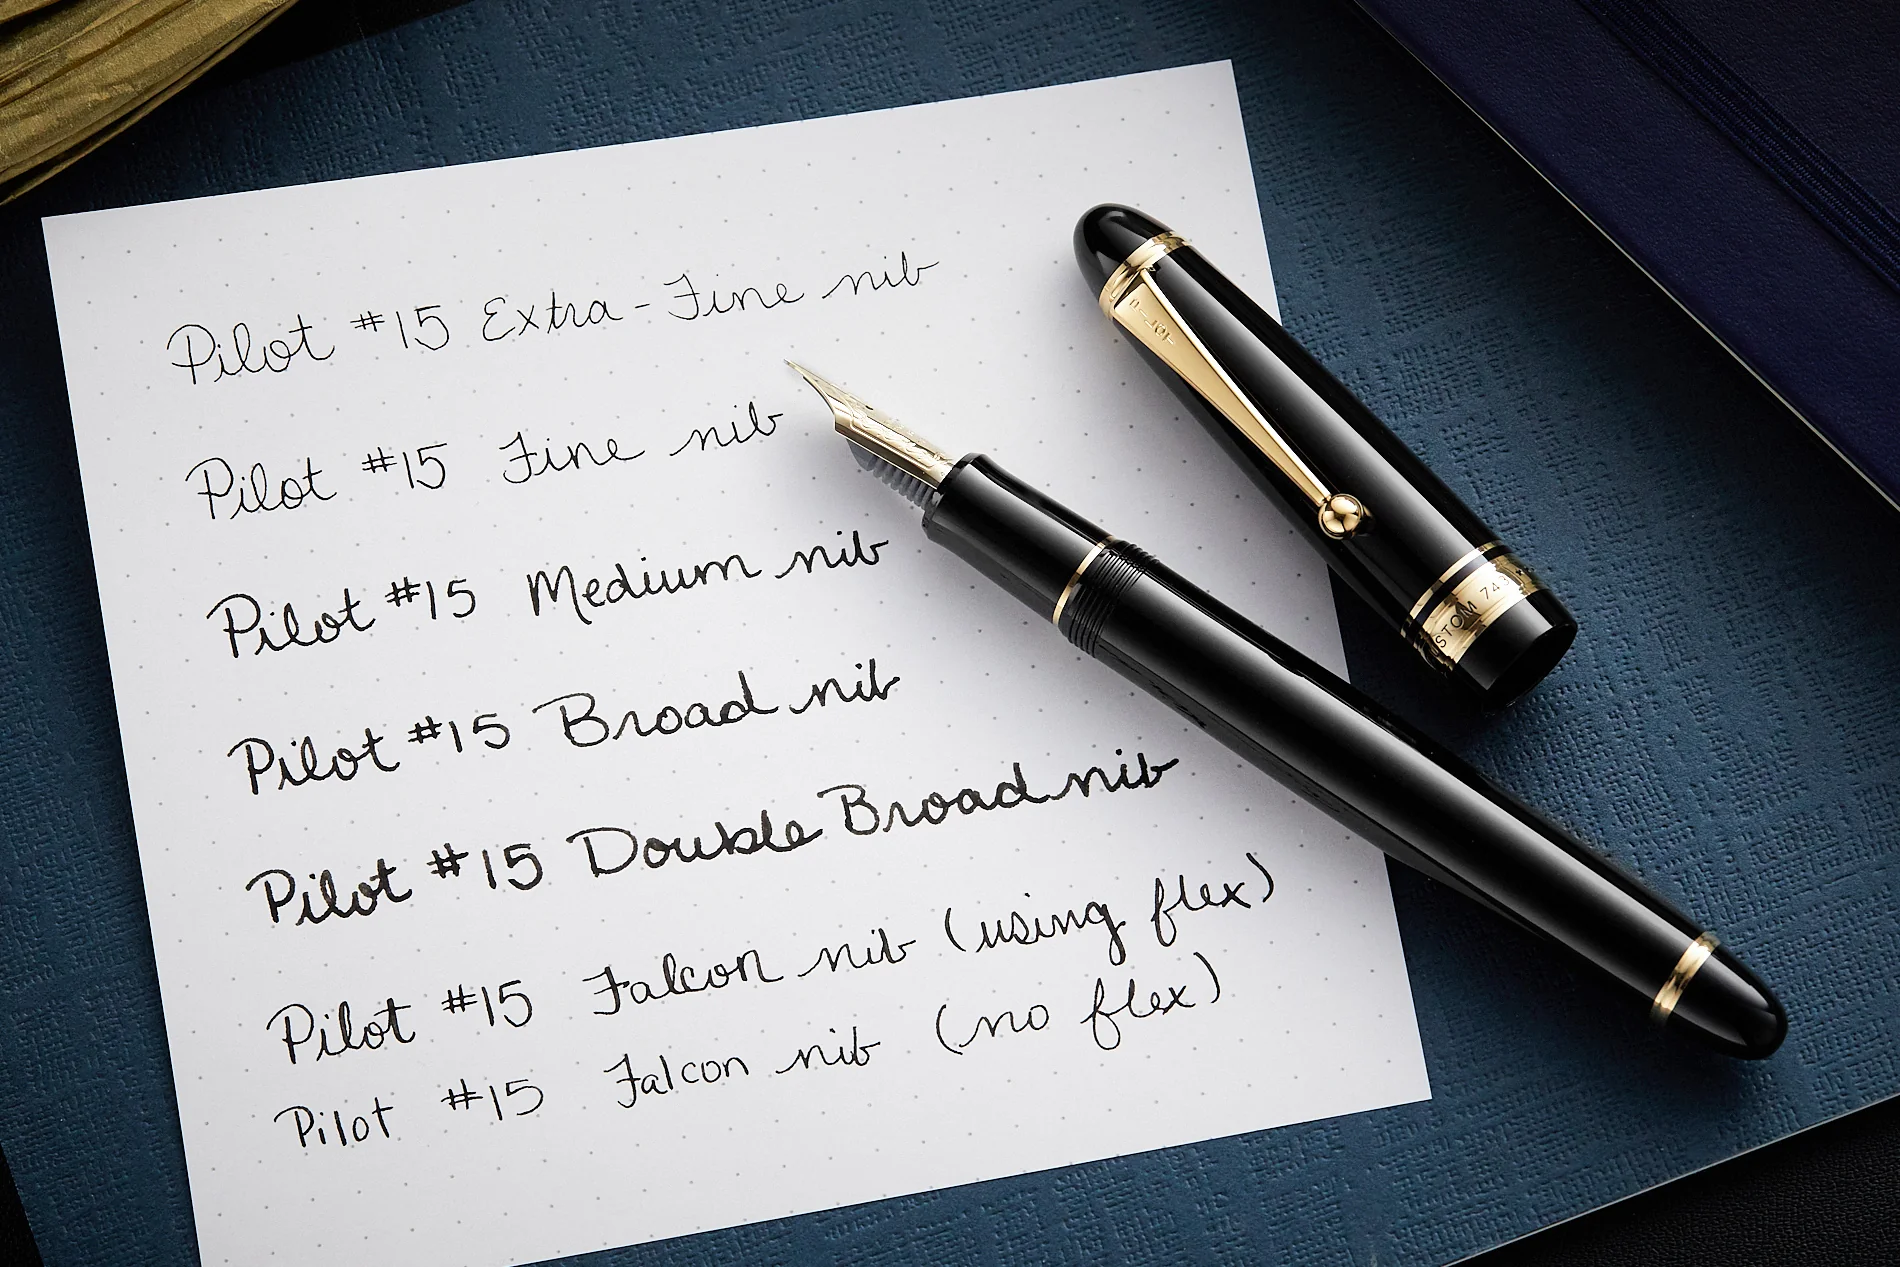 Pilot #15 Extra-Fine nib
Pilot #15 Fine nib
Pilot #15 Medium nib
Pilot #15 Broad nib
Pilot #15 Double Broad nib
Pilot #15 Falcon nib (using flex)
Pilot #15 Falcon nib (no flex)
PILOT
STOM 743